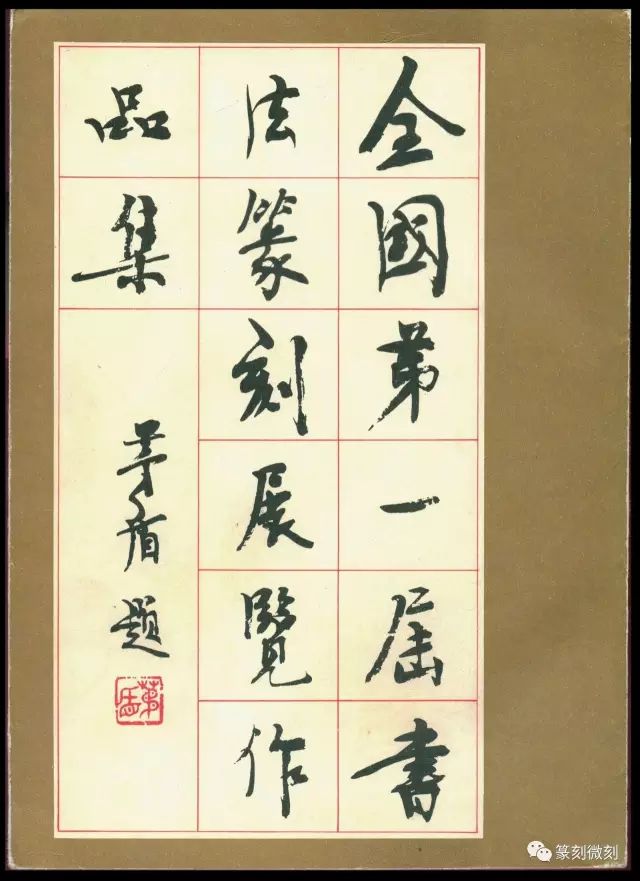 全國第一屆書
法篆刻展覽作
品集
茅盾題
茅盾
篆刻微刻